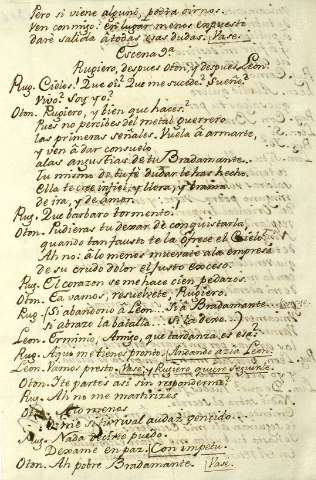 Pero si viene alguno, podra oirnos.
Ven conmigo: en lugar menos expuesto
daré salida à todas esas dudas. Vase.
Escena 9ª
Rugiero, despues Oton, y despues Leon.
Rug. Cielos! Que oi? Que me sucede? Sueño?
Vivo? Soy yo?
Oton. Rugiero, y bien que haces?
Pues no percibes del metal guerrero
las primeras señales. Vuela à armarte,
y ven à dar consuelo
alas angustias de tu Bradamante.
Tu mismo de tu fé dudar le has hecho.
Ella te cree infiel, y llora, y brama
de ira, y de amor.
Rug. Que barbaro tormento!
Oton. Pudieras tu dexar de conquistarla,
quando tan fausto te la ofrece el Cielo?
Ah no: à lo menos muevate ala empresa
de su crudo dolor el justo exceso.
Rug. El corazon se me hace cien pedazos.
Oton. Ea vamos, resuelvete, Rugiero.
Rug. (Si abandono à Leon... Si à Bradamante
Si abrazo la batalla... Si la dexo...)
Leon. Erminio, Amigo, que tardanza es esa?
Rug. Aqui me tienes pronto. Andando azia Leon.
Leon. Vamos presto. Vase, y Rugiero quiere seguirle.
Oton. Y te partes asi sin responderme?
Rug. Ah no me martirizes
Oton. lo menos
si tu rival audaz vencido
Rug. Nada decirte puedo.
Dexame en paz. Con impetu.
Oton. Ah pobre Bradamante. Vase.